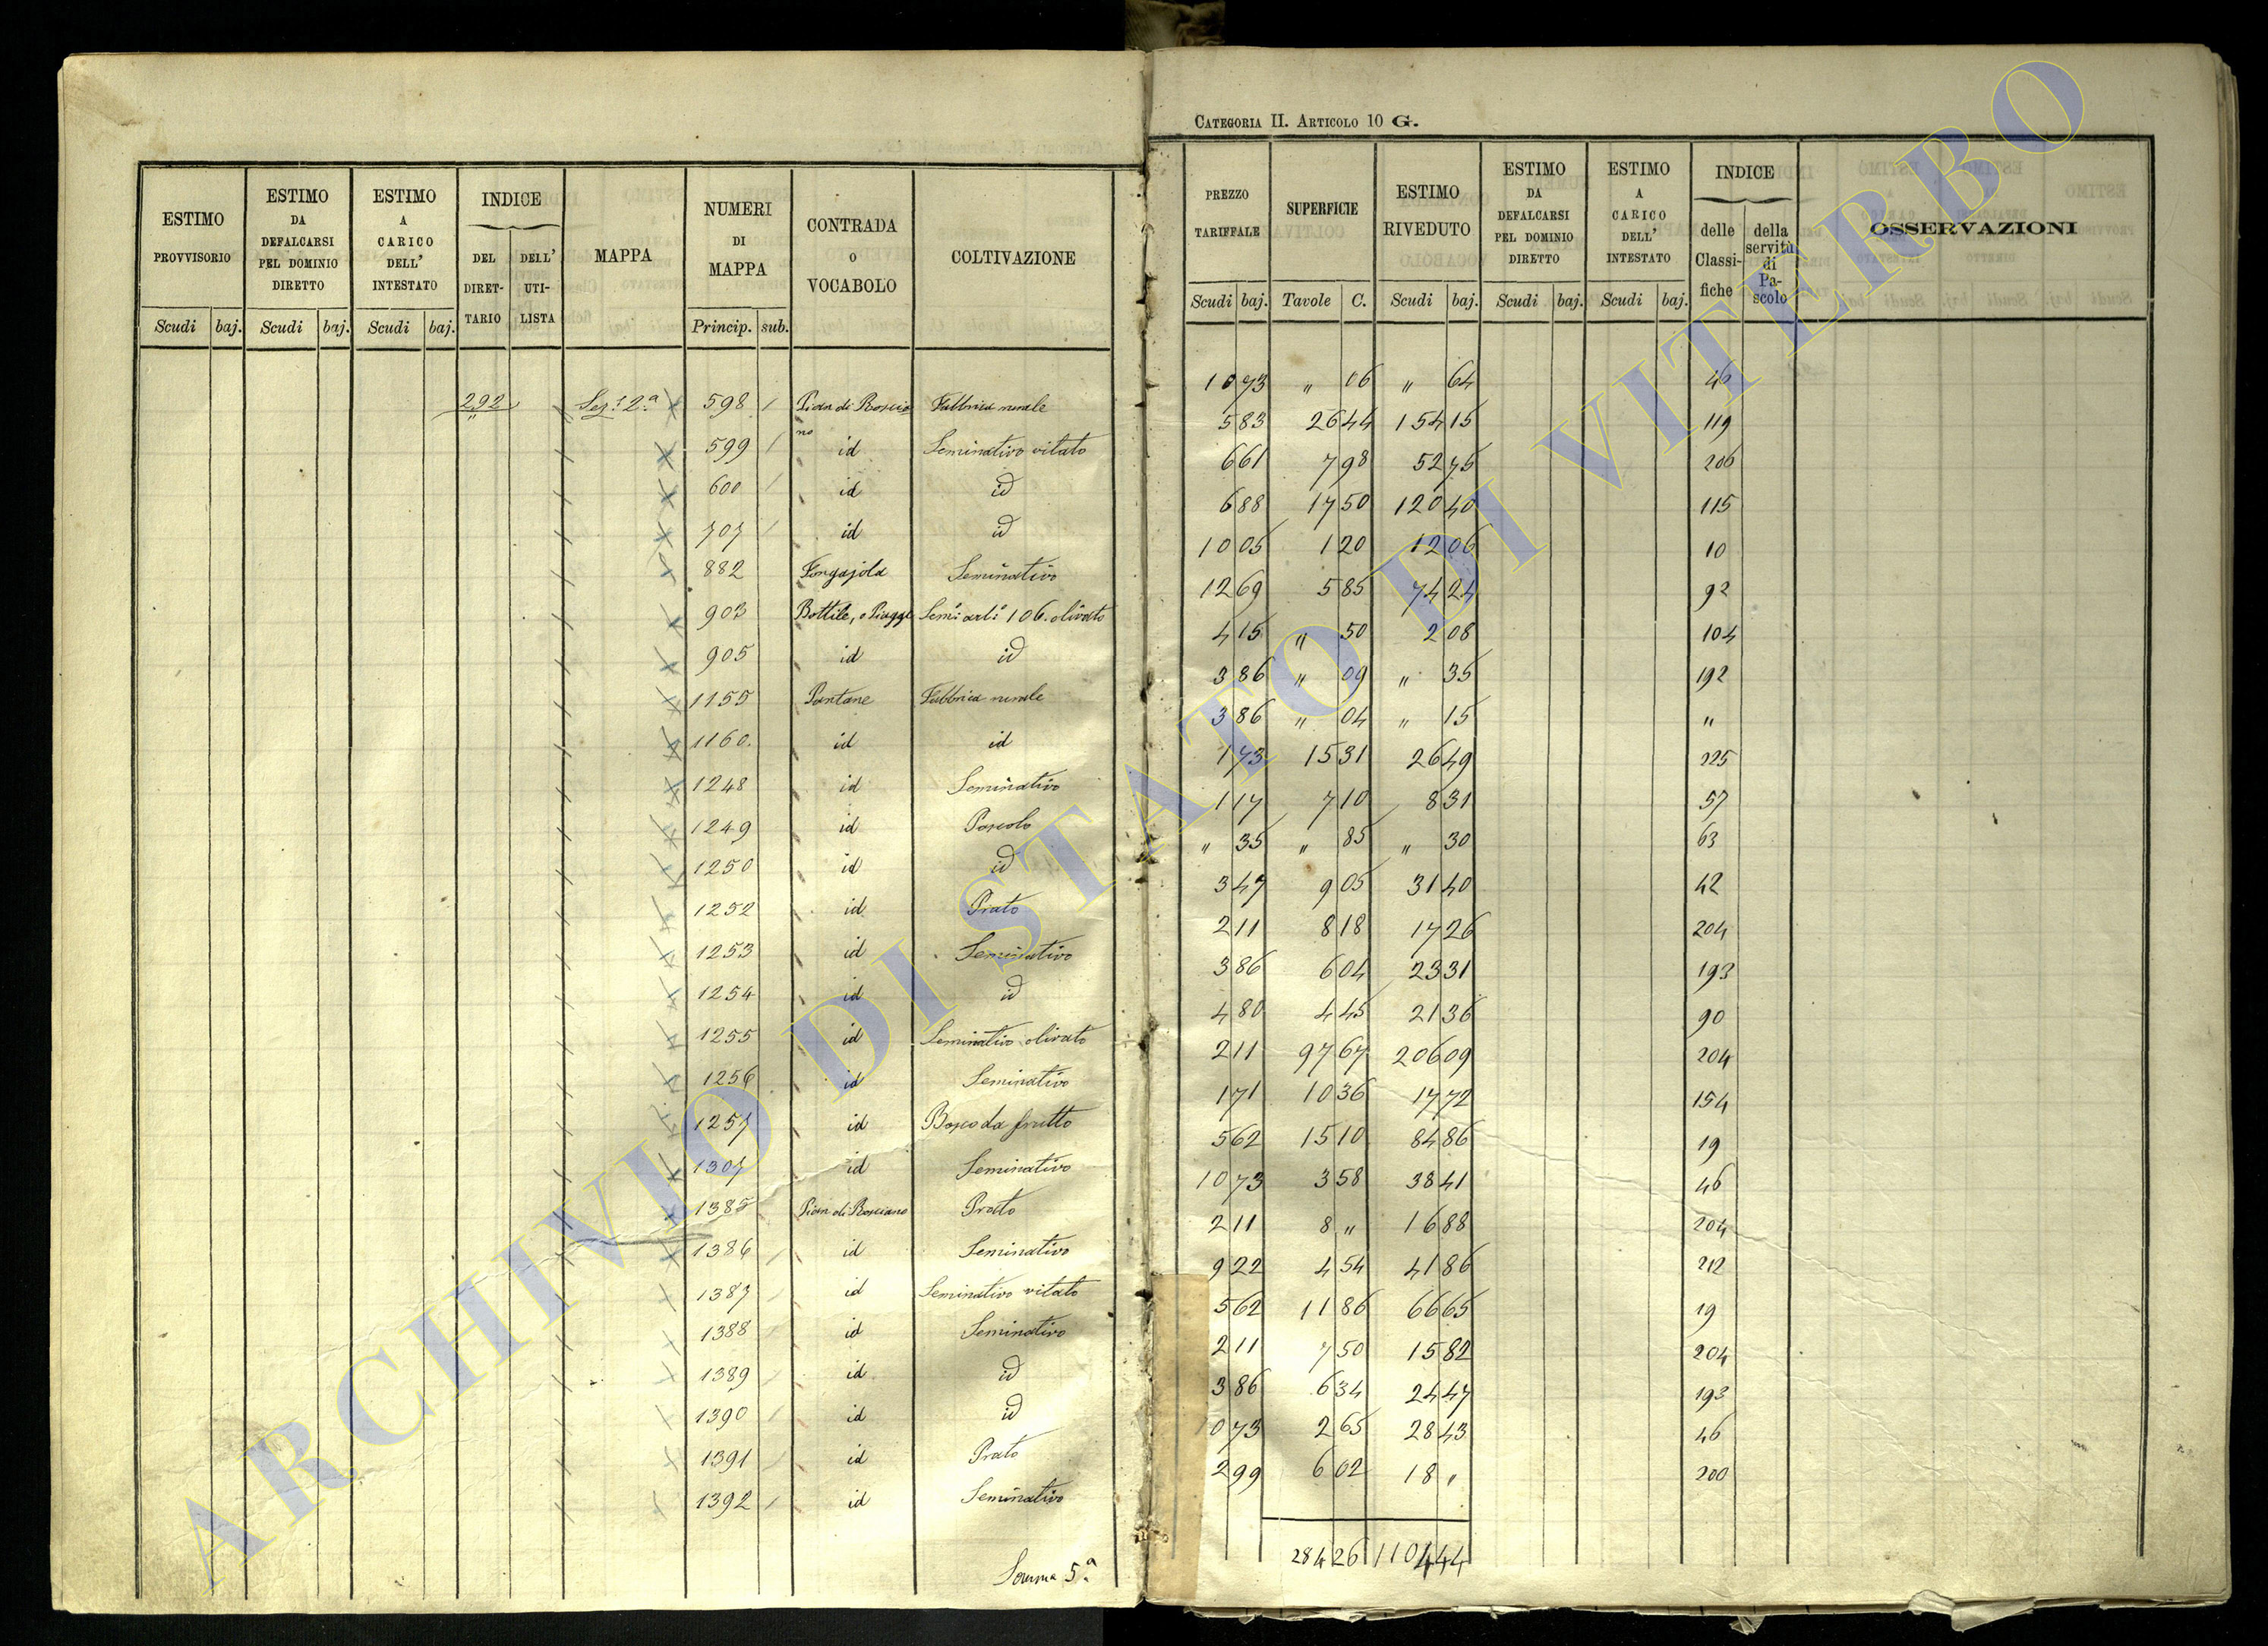 CATEGORIA II. ARTICOLO 10 G.
ESTIMO PROVVISORIO Scudi baj.
ESTIMO DA DEFALCARSI PEL DOMINIO DIRETTO Scudi baj.
ESTIMO A CARICO DELL' INTESTATO Scudi baj.
INDICE DEL DIRET-TARIO DELL' UTI-LISTA
MAPPA
NUMERI DI MAPPA Princip. sub.
CONTRADA O VOCABOLO
COLTIVAZIONE
PREZZO TARIFFALE Scudi baj.
SUPERFICIE Tavole C.
ESTIMO RIVEDUTO Scudi baj.
ESTIMO DA DEFALCARSI PEL DOMINIO DIRETTO Scudi baj.
ESTIMO A CARICO DELL' INTESTATO Scudi baj.
INDICE delle Classi-fiche della servitù di Pa-scolo
OSSERVAZIONI
292 Sez.e 2.a 598 Pian di Rosciano Fabbrica rurale 10 73 " 06 " 64 46
599 id Seminativo vitato 5 83 26 44 154 15 119
600 id id 6 61 7 98 52 75 206
707 id id 6 88 17 50 120 40 115
882 Fongajola Seminativo 10 05 1 20 12 06 10
903 Bottile, o Piagge Sem: art: 106. olivato 12 69 5 85 74 24 92
905 id id 4 15 " 50 2 08 104
1155 Pantane Fabbrica rurale 3 86 " 09 " 35 192
1160. id id 3 86 " 04 " 15 "
1248 id Seminativo 1 73 15 31 26 49 225
1249 id Pascolo 1 17 7 10 8 31 57
1250 id id " 35 " 85 " 30 63
1252 id Prato 3 47 9 05 31 40 42
1253 id Seminativo 2 11 8 18 17 26 204
1254 id id 3 86 6 04 23 31 193
1255 id Seminativo olivato 4 80 4 45 21 36 90
1256 id Seminativo 2 11 97 67 206 09 204
1257 id Bosco da frutto 1 71 10 36 17 72 154
1307 id Seminativo 5 62 15 10 84 86 19
1385 Pian di Rosciano Prato 10 73 3 58 38 41 46
1386 id Seminativo 2 11 8 " 16 88 204
1387 id Seminativo vitato 9 22 4 54 41 86 212
1388 id Seminativo 5 62 11 86 66 65 19
1389 id id 2 11 7 50 15 82 204
1390 id id 3 86 6 34 24 47 193
1391 id Prato 10 73 2 65 28 43 46
1392 id Seminativo 2 99 6 02 18 " 200
Somma 5.a 284 26 1104 44
ARCHIVIO DI STATO DI VITERBO